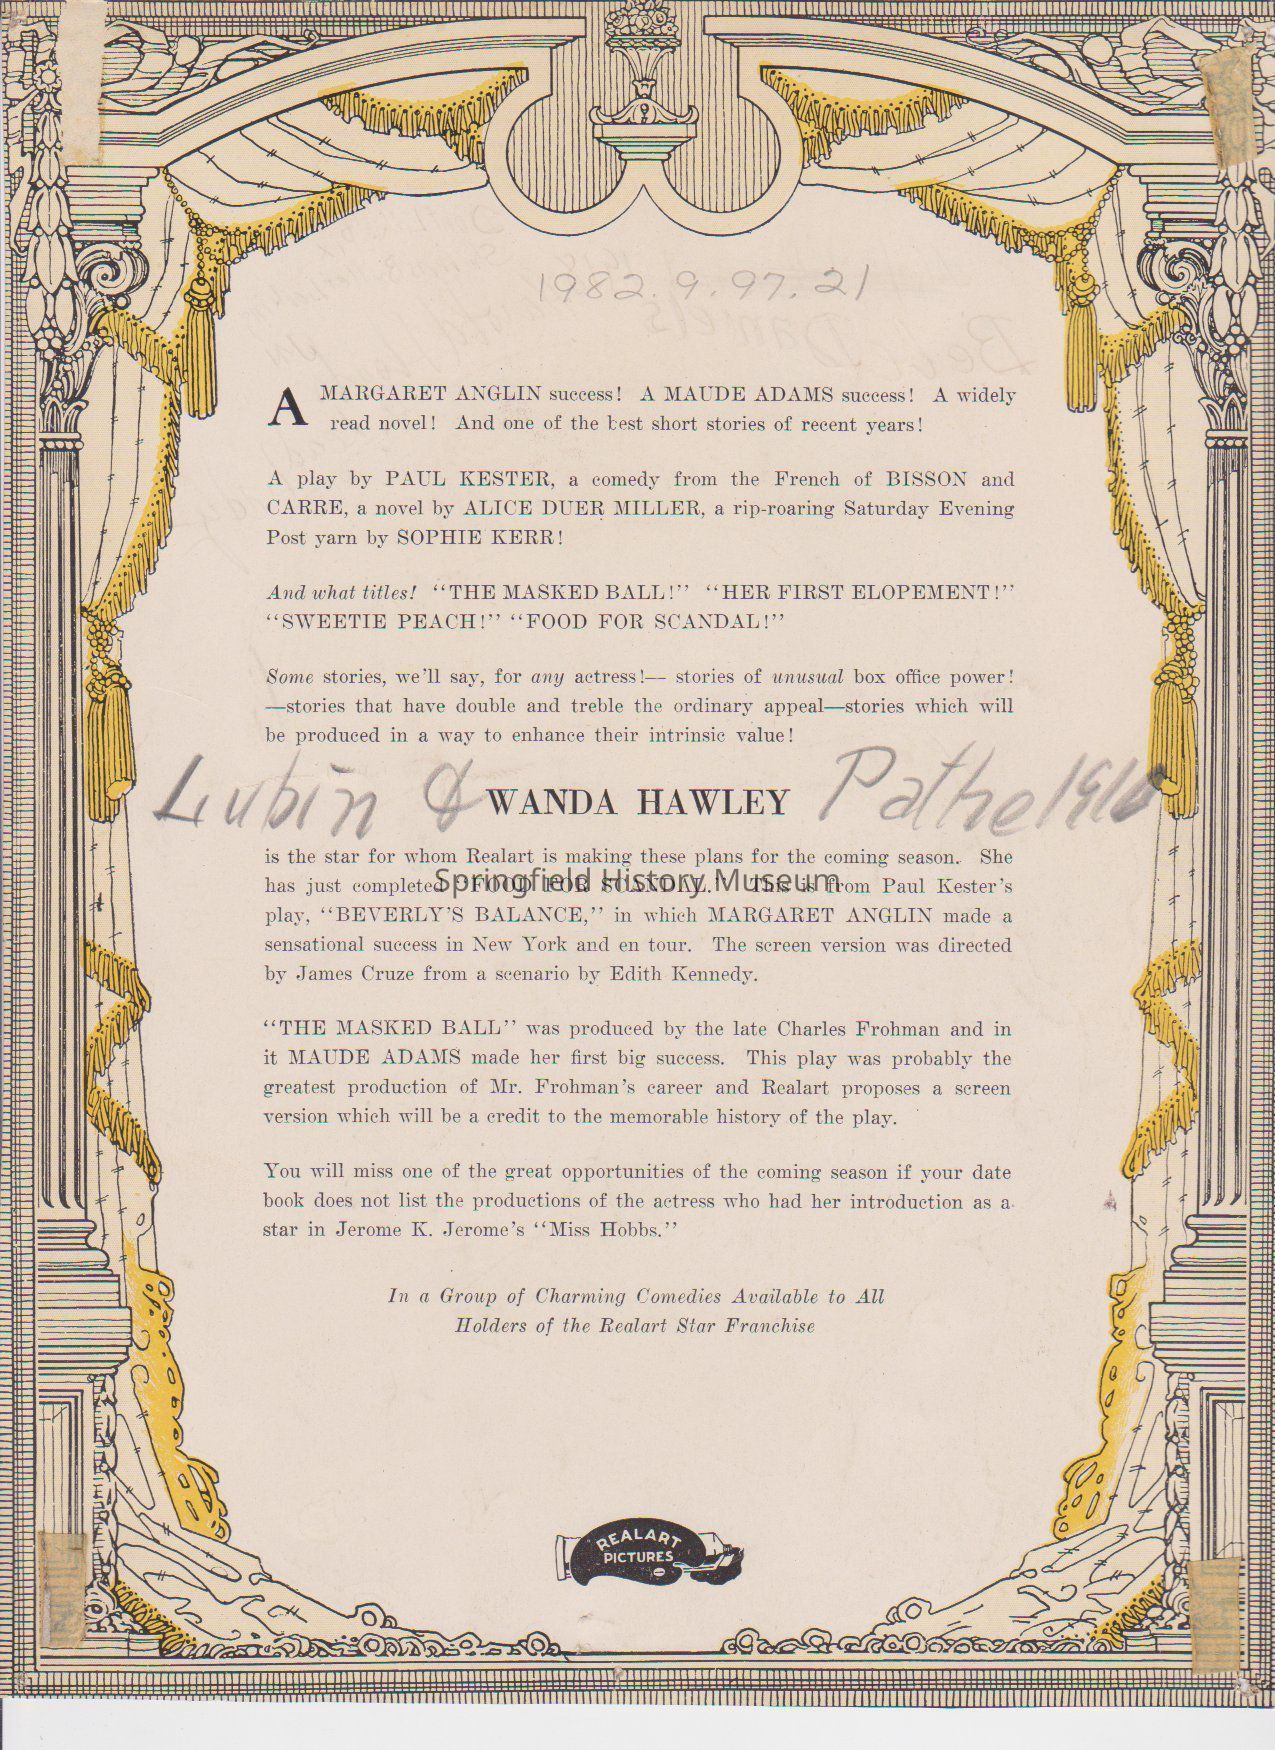 1982.9.97.21
A MARGARET ANGLIN success! A MAUDE ADAMS success! A widely
read novel! And one of the best short stories of recent years!
A play by PAUL KESTER, a comedy from the French of BISSON and
CARRE, a novel by ALICE DUER MILLER, a rip-roaring Saturday Evening
Post yarn by SOPHIE KERR!
And what titles! "THE MASKED BALL!" "HER FIRST ELOPEMENT!"
"SWEETIE PEACH!" "FOOD FOR SCANDAL!"
Some stories, we'll say, for any actress!— stories of unusual box office power!
—stories that have double and treble the ordinary appeal—stories which will
be produced in a way to enhance their intrinsic value!
Lubin & WANDA HAWLEY Pathe 1916
is the star for whom Realart is making these plans for the coming season. She
has just completed "FOOD FOR SCANDAL." This is from Paul Kester's
Springfield History Museum
play, "BEVERLY'S BALANCE," in which MARGARET ANGLIN made a
sensational success in New York and en tour. The screen version was directed
by James Cruze from a scenario by Edith Kennedy.
"THE MASKED BALL" was produced by the late Charles Frohman and in
it MAUDE ADAMS made her first big success. This play was probably the
greatest production of Mr. Frohman's career and Realart proposes a screen
version which will be a credit to the memorable history of the play.
You will miss one of the great opportunities of the coming season if your date
book does not list the productions of the actress who had her introduction as a
star in Jerome K. Jerome's "Miss Hobbs."
In a Group of Charming Comedies Available to All
Holders of the Realart Star Franchise
REALART
PICTURES